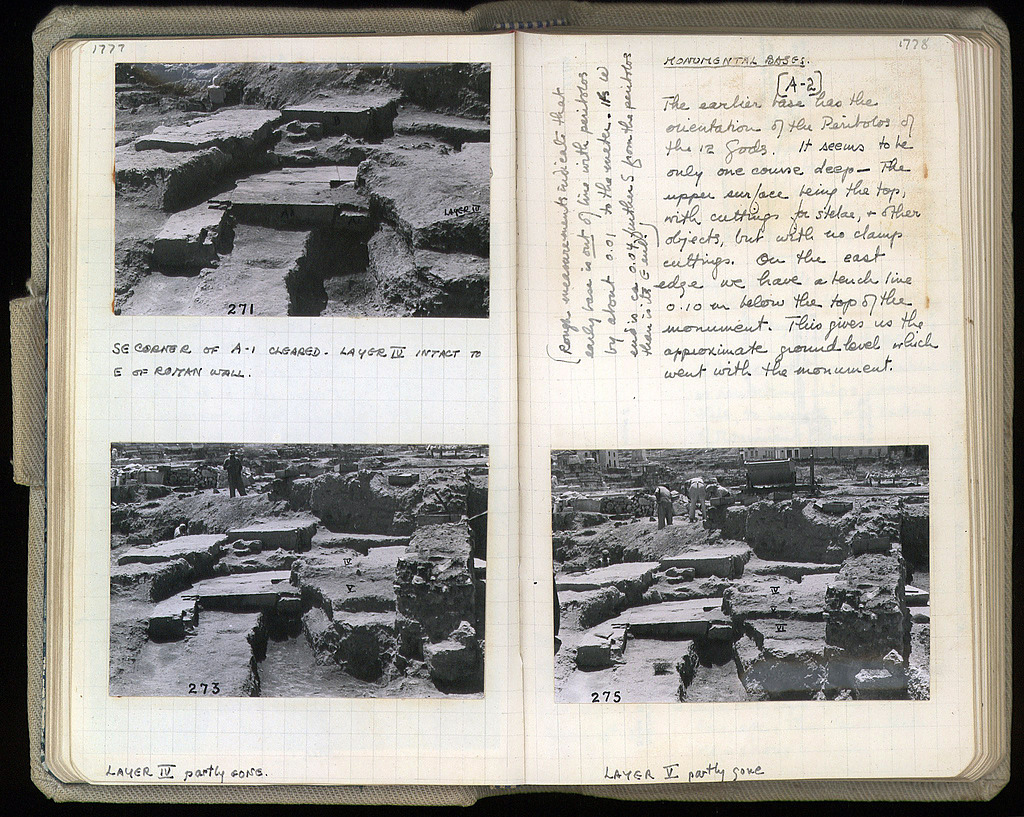 1777
B
A
LAYER IV
271
SE CORNER OF A-1 CLEARED. LAYER IV INTACT TO
E OF ROMAN WALL.
IV
V
273
LAYER IV partly GONE.
1778
MONUMENTAL BASES.
[A-2]
The earlier base has the
orientation of the Peribolos of
the 12 Gods. It seems to be
only one course deep - The
upper surface being the top,
with cuttings for stelae, + other
objects, but with no clamp
cuttings. On the east
edge we have a tench line
0.10 m below the top of the
monument. This gives us the
approximate ground level which
went with the monument.
(Rough measurements indicate that
early base is out of line with peribolos
by about 0.01 to the meter. Its W
end is ca 0.04 further S from the peribolos
than is its E end)
IV
V
VI
275
LAYER V partly gone